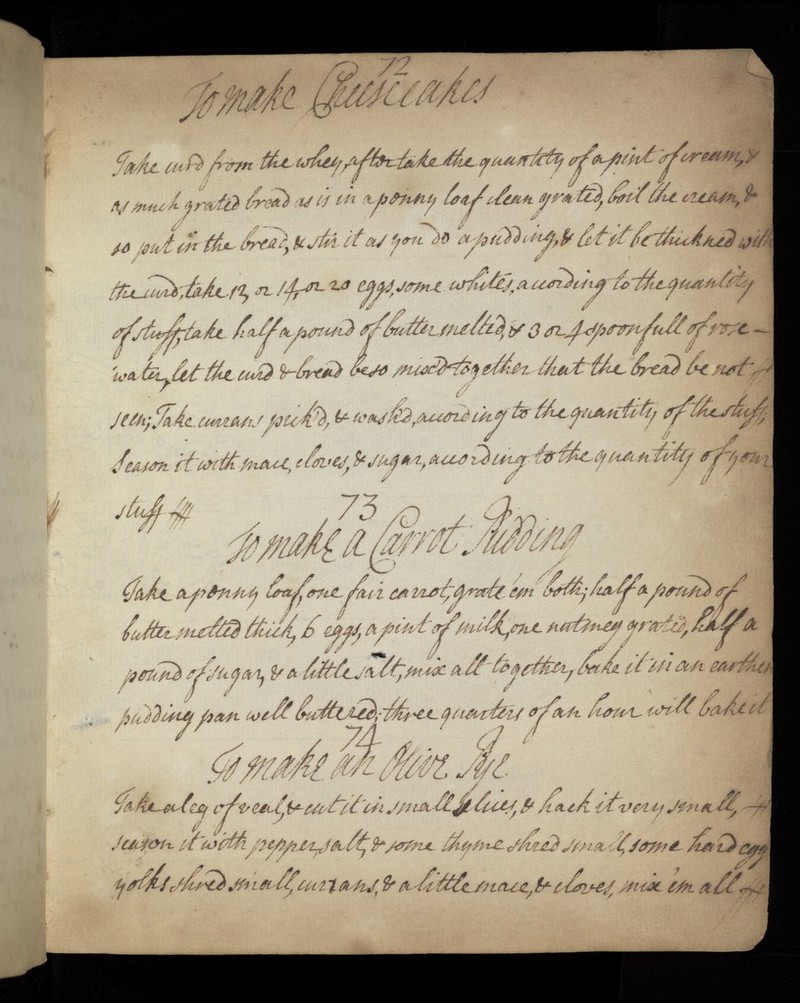 72
To make Cheesecakes
Take curd from the whey, after take the quantity of a pint of cream, &
as much grated bread as is in a penny loaf clean grated, boil the cream, &
so put in the bread, & stir it as you do a pudding, & let it be thickned with
the curd, take 12, or 14, or 20 eggs, some whites, according to the quantity
of stuff, take half a pound of butter melted, & 3 or 4 spoonfull of rose-
water, let the curd & bread be so mix'd together that the bread be not
seen; Take currans pick'd, & wash'd, according to the quantity of the stuff,
Season it with mace, cloves, & sugar, according to the quantity of your
stuff
73
To make a Carrot Pudding
Take a penny loaf, one fair carrot, grate 'em both; half a pound of
butter melted thick, 6 eggs, a pint of milk, one nutmeg grated, half a
pound of sugar, & a little salt, mix all together, bake it in an earthen
pudding pan well buttered; three quarters of an hour will bake it
74
To make an Olive Pye
Take a leg of veal, & cut it in small slices, & hack it very small,
season it with pepper, salt, & some thyme shred small, some hard egg
yolks shred small, currans, & a little mace, & cloves, mix 'em all